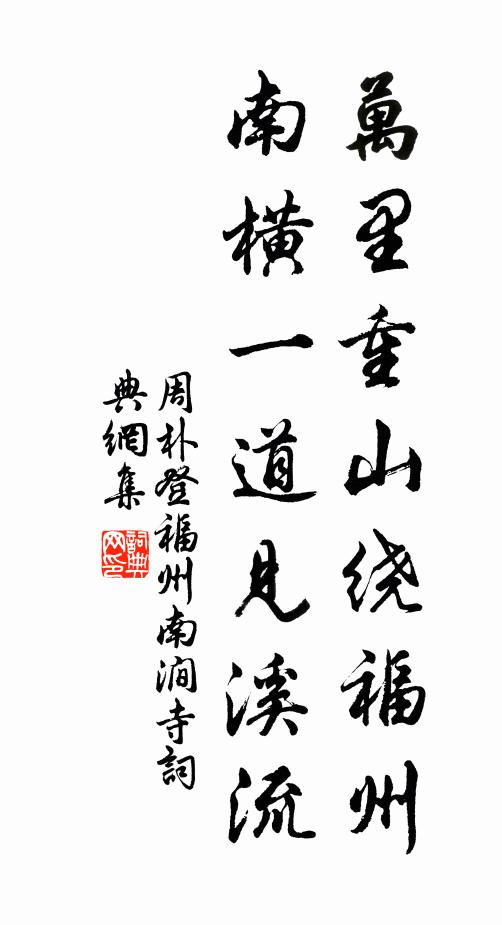 萬里重山绕福州
南横一道見溪流
周朴登福州南澗寺詞
典網集
詞典网印